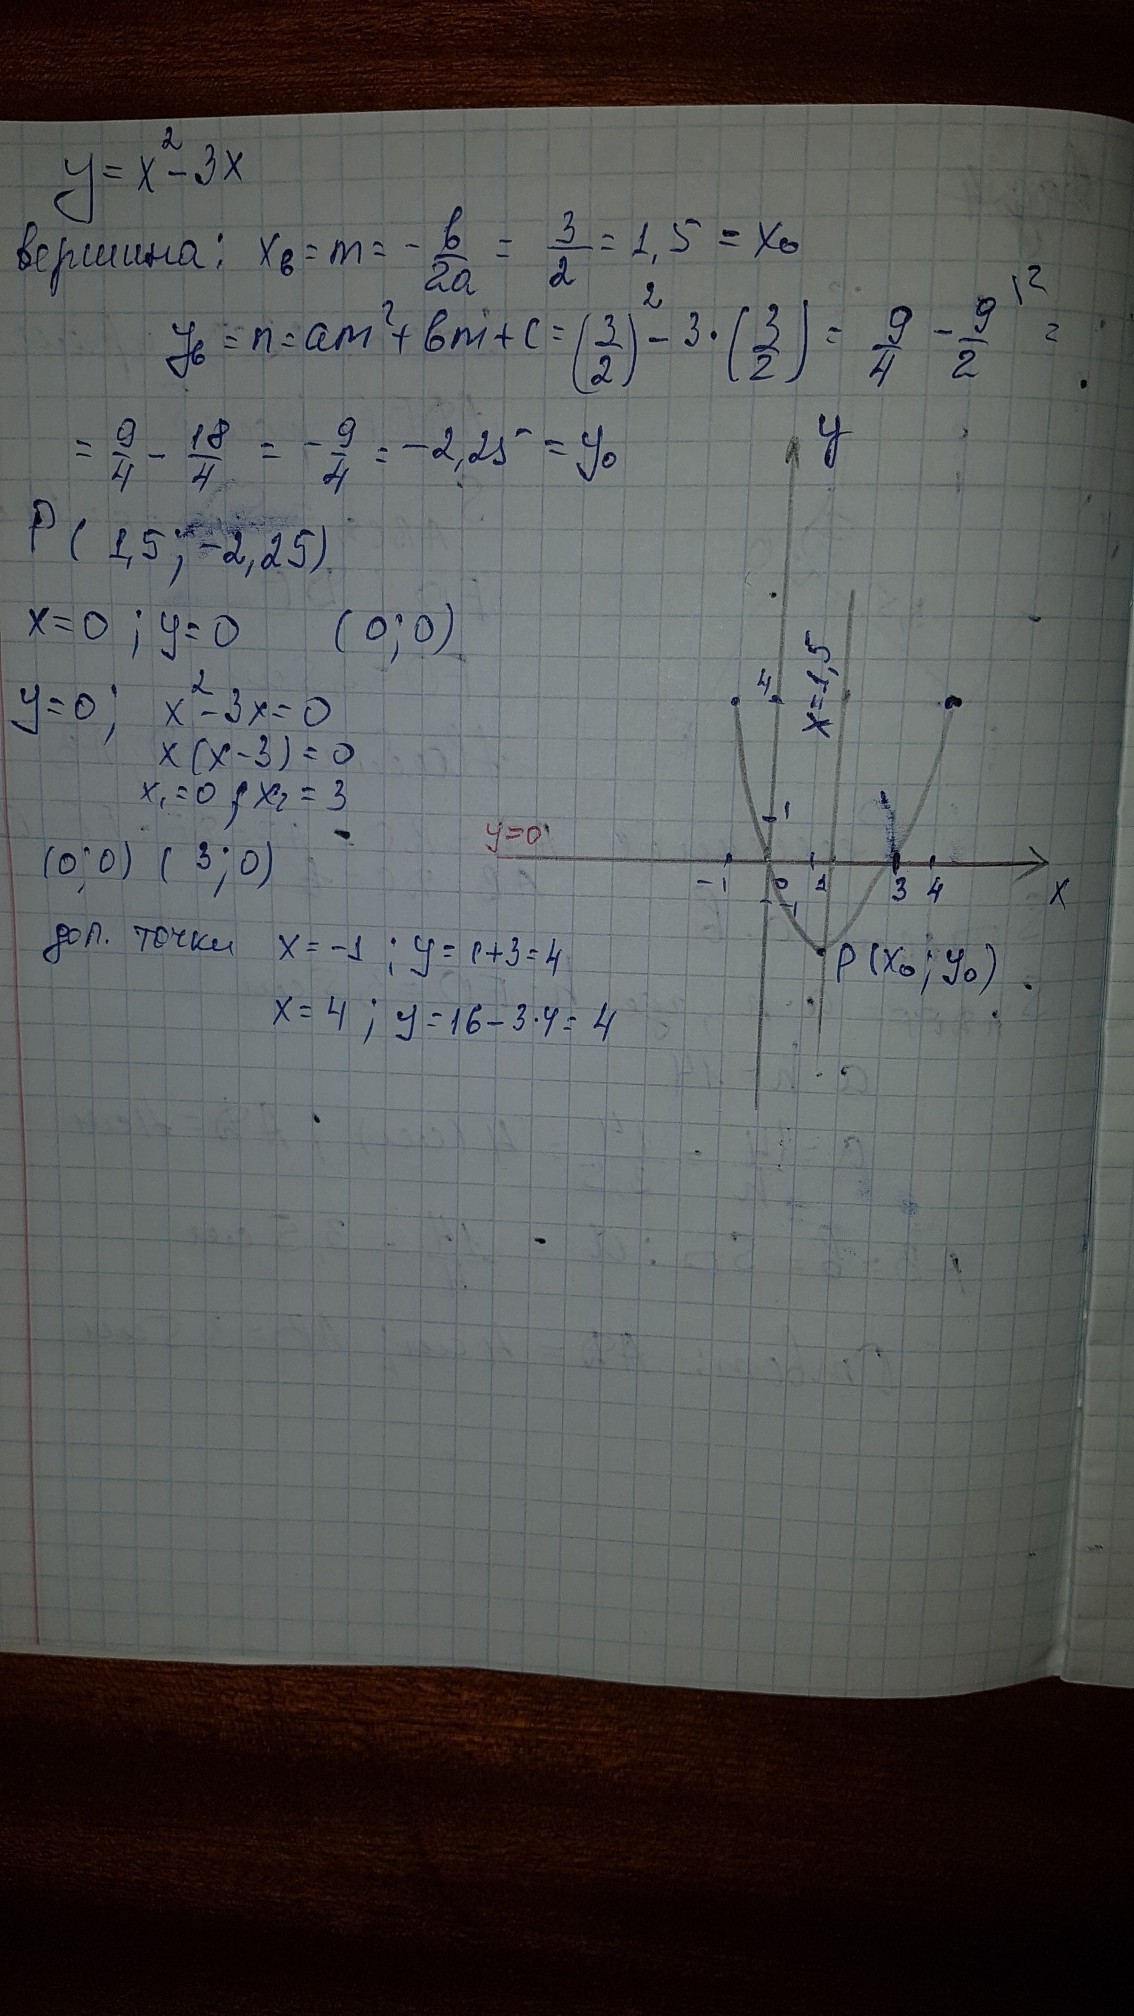 y = x² - 3x
вершина: xв = m = - в/2a = 3/2 = 1,5 = x₀
yв = n = am² + вm + c = (3/2)² - 3·(3/2) = 9/4 - 9/2 |² =
= 9/4 - 18/4 = - 9/4 = -2,25 = y₀
P ( 1,5 ; -2,25)
x=0 ; y=0 (0;0)
y=0; x² - 3x = 0
x (x-3) = 0
x₁=0 ; x₂ = 3
(0;0) ( 3 ; 0)
доп. точки x = -1 ; y = 1+3 = 4
x = 4 ; y = 16 - 3·4 = 4
y
4
x=1,5
1
y=0
-1 0 1 3 4 x
-1
P (x₀ ; y₀)